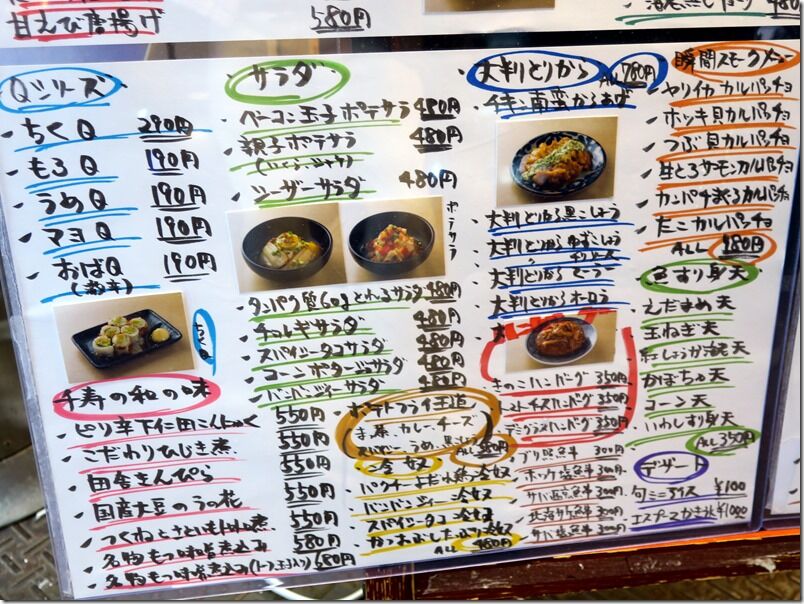 甘えび唐揚げ
580円
480円
Qシリーズ
ちくQ 290円
もろQ 190円
うめQ 190円
マヨQ 190円
おばQ 190円
ちくQ
千寿の和の味
ピリ辛下仁田こんにゃく 550円
こだわりひじき煮 550円
田舎きんぴら 550円
国産大豆のうの花 550円
つくねとさといも 550円
名物もつ味噌煮込み 580円
名物もつ味噌煮込み(トーフ、玉子入り) 680円
サラダ
ベーコン玉子ポテサラ 480円
親子ポテサラ 480円
シーザーサラダ 480円
ポテサラ
タンパク質60gとれるサラダ 480円
チョレギサラダ 480円
スパイシータコサラダ 480円
コーンポタージュサラダ 480円
バンバンジーサラダ 480円
ポテトフライ王道
カレー、チーズ
ALL 380円
冷奴
バンバンジー冷奴
スパイシータコ冷奴
かつおぶしたっぷり冷奴
ALL 480円
大判とりから ALL 780円
チキン南蛮からあげ
大判とりから黒こしょう
大判とりからゆずこしょう
大判とりから
大判とりから
きのこハンバーグ 350円
トマトチーズハンバーグ 350円
デミグラスハンバーグ 350円
300円
ホッケ塩魚半 300円
300円
300円
サバ塩魚半 300円
瞬間スモーク
ヤリイカカルパッチョ
ホッキ貝カルパッチョ
つぶ貝カルパッチョ
生とろサーモンカルパッチョ
カンパチ炙るカルパッチョ
たこカルパッチョ
ALL 980円
魚すり身天
えだまめ天
玉ねぎ天
紅しょうが天
かぼちゃ天
コーン天
いわしすり身天
ALL 350円
デザート
旬ミニアイス ¥100
エスプーマかき氷 ¥1000